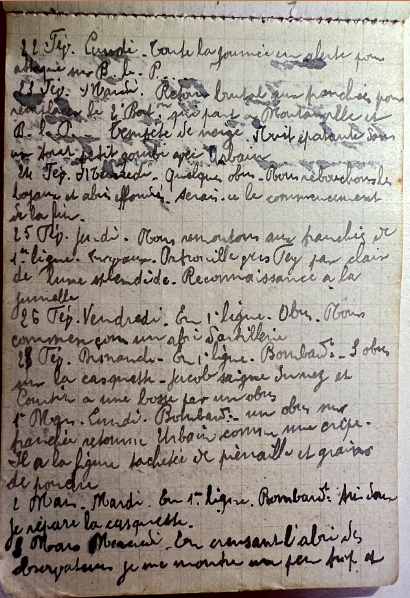 22 Fév. Lundi. Toute la journée en alerte pour
attaque sur B. l. P.
23 Fév. Mardi. Retour brutal aux tranchées pour
le 2e Bat.on qui part à Montauville et
B. l. P. Tempête de neige. Nuit épatante dans
un tout petit gourbi avec Urbain
24 Fév. Mercredi. Quelques obus. Nous rebouchons les
boyaux et abris effondrés. Serait-ce le commencement
de la fin.
25 Fév. Jeudi. Nous remontons aux tranchées de
1ère ligne. Travaux. Patrouille près Fey par clair
de lune splendide. Reconnaissance à la
jumelle
26 Fév. Vendredi. En 1e ligne. Obus. Nous
commençons un abri d'artillerie
28 Fév. Dimanche. En 1e ligne. Bombardt. 3 obus
sur la casquette. Jacob saigne du nez et
a une bosse par un obus
1er Mars. Lundi. Bombardt. un obus sur
tranchée retourne Urbain comme une crêpe.
Il a la figure tachetée de pierraille et grains
de poudre
2 Mars. Mardi. En 1ère ligne. Bombardt. très doux
Je répare la casquette.
3 Mars Mercredi. En creusant l'abri des
observateurs je me montre un peu trop et